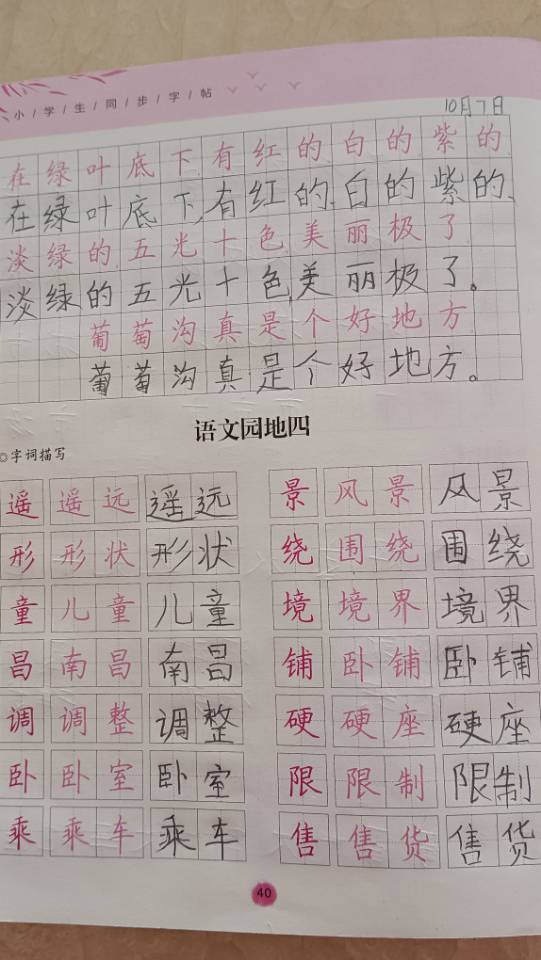 小/学/生/同/步/字/帖
10月7日
在绿叶底下有红的白的紫的
在绿叶底下,有红的、白的、紫的、
淡绿的五光十色美丽极了
淡绿的,五光十色,美丽极了。
葡萄沟真是个好地方
葡萄沟真是个好地方。
语文园地四
◎字词描写
遥 遥远 遥远 景 风景 风景
形 形状 形状 绕 围绕 围绕
童 儿童 儿童 境 境界 境界
昌 南昌 南昌 铺 卧铺 卧铺
调 调整 调整 硬 硬座 硬座
卧 卧室 卧室 限 限制 限制
乘 乘车 乘车 售 售货 售货
40